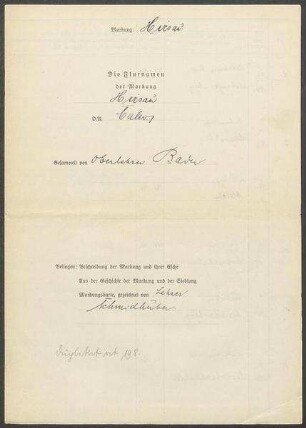 Markung Hirsau
Die Flurnamen
der Markung
Hirsau
OA. Calw
Gesammelt von Oberlehrer Bader
Beilagen: Beschreibung der Markung und ihrer Esche
Aus der Geschichte der Markung und der Siedlung
Markungskarte, gezeichnet von Lehrer
Schmidhuber